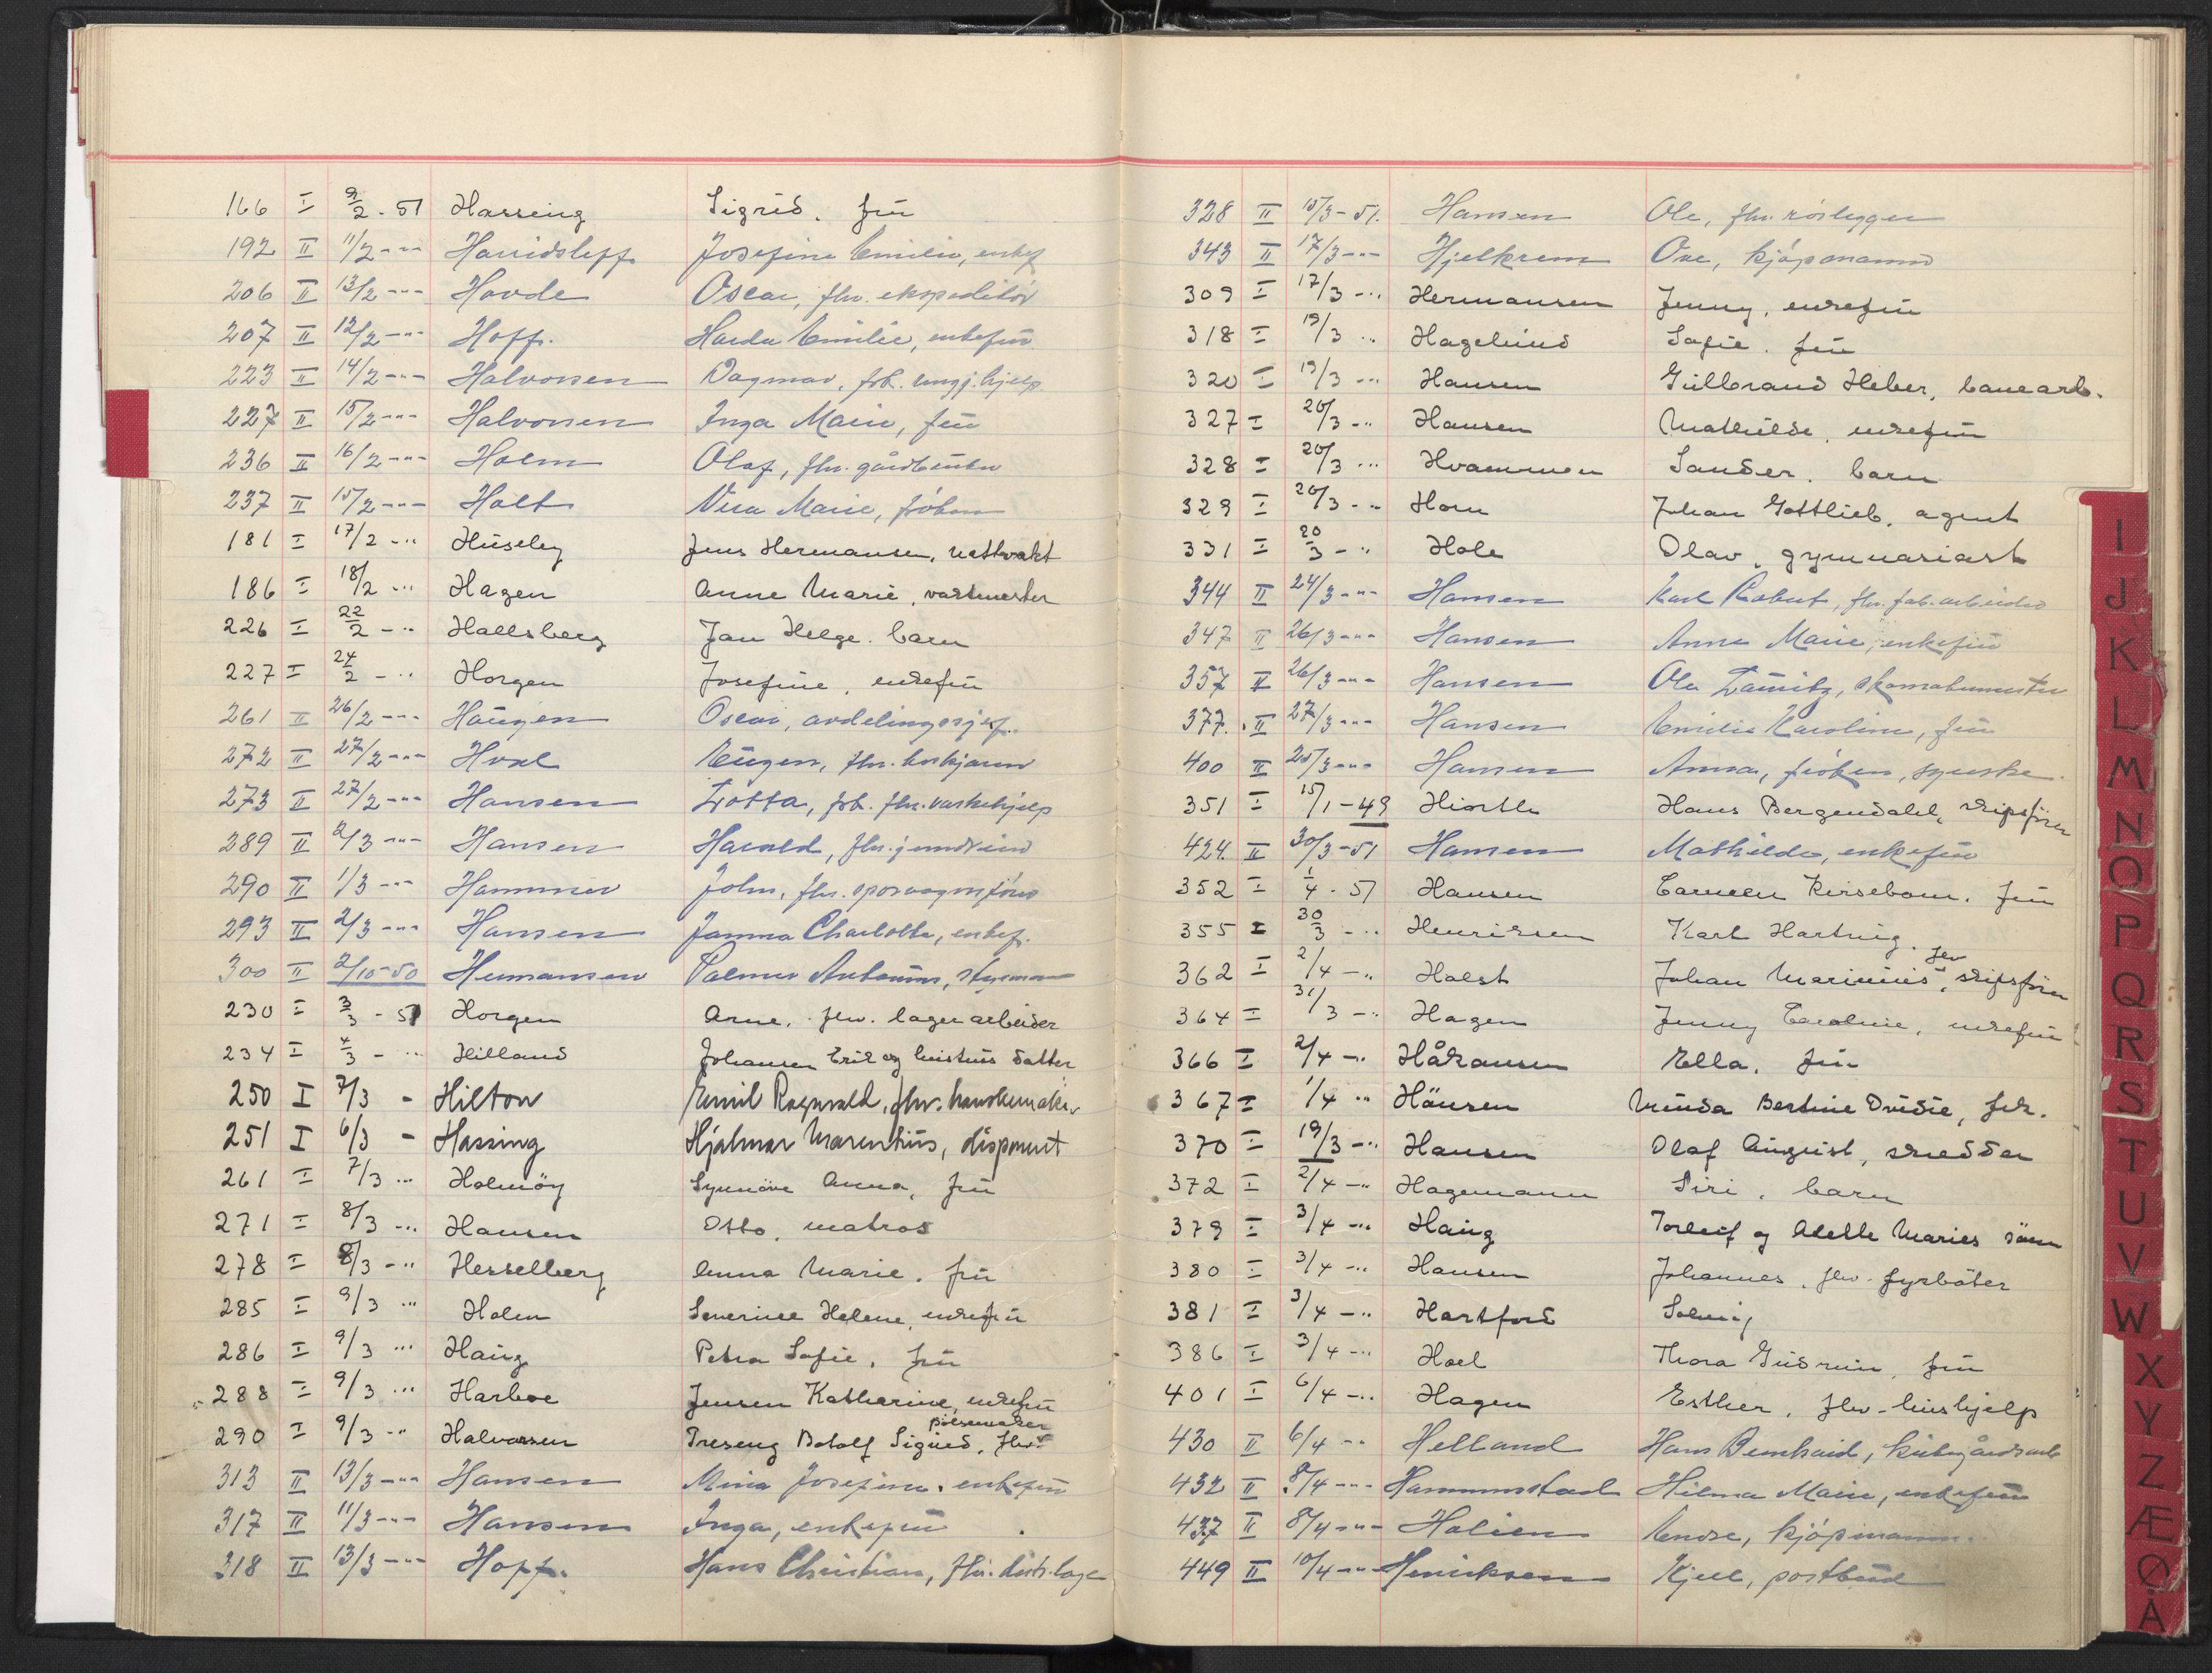 166 I 9/2 - 51 Hassing Sigrid. frü
192 II 11/2 -"- Josefine Emilie, enkef
206 II 13/2 -"- Hovde Oscar, fhv. ekspeditör
207 II 12/2 -"- Hoff. Emilie, enkefrü
223 II 14/2 -"- Halvorsen Dagmar, frk. rengj.hjelp
227 II 15/2 -"- Halvorsen Inga Marie, frü
236 II 16/2 -"- Holm Olaf, fhv. gårdbrüker
237 II 15/2 -"- Holt Vera Marie, fröken
181 I 17/2 -" Hüseby Jens Hermansen, nattvakt
186 I 18/2 -" Hagen Anne Marie, vaskmester
226 I 22/2 -" Hallsberg Jan Helge. barn
227 I 24/2 -" Horgen Josefine, enkefrü
261 II 26/2 -"- Haügen Oscar, avdelingssjef.
272 II 27/2 -"- Hval Eügen, fhv.
273 II 27/2 -"- Hansen Lotta, frk. fhv. vaskehjelp
289 II 2/3 -"- Hansen Harald, fhv.
290 II 1/3 -"- Hammer John, fhv. sporvognsförer
293 II 2/3 -"- Hansen Janna Charlotte, enkef.
300 II 2/10-50 Hermansen Palmer Antonius, styrmann
230 I 3/3 - 51 Horgen Arne, fhv. lagerarbeider
234 I 4/3 -" Hilland Johansen Erik og hüstrüs datter
250 I 7/3 - Hilton Emil Ragnvald, fhv. hanskemaker
251 I 6/3 - Hassing Hjalmar Marentiüs, disponent
261 I 7/3 -" Holmöy Synnöve Anna, frü
271 I 8/3 -" Hansen Otto, matros
278 I 8/3 -" Hesselberg Anna Marie. frü
285 I 9/3 -" Holm Severine Helene, enkefrü
286 I 9/3 -" Haüg Petra Sofie, frü
288 I 9/3 -" Harboe Jensen Katharine, enkefrü
290 I 9/3 -" Halvorsen Treseng Botolf Sigürd, fhv. pölsemaker
313 II 13/3 -"- Hansen Mina Josefine, enkefrü
317 II 11/3 -"- Hansen Inga, enkefrü
318 II 13/3 -"- Hopf. Hans Christian, fhv.
328 II 15/3 - 51. Hansen Ole, fhv. rörlegger
343 II 17/3 -"- Hjelkrem Ove, kjöpmann
309 I 17/3 -" Hermansen Jenny, enkefrü
318 I 19/3 -" Hagelünd Sofie. frü
320 I 19/3 -" Hansen Gülbrand Heber, banearb.
327 I 20/3 -" Hansen Mathilde, enkefrü
328 I 20/3 -" Hvammen Sander, barn
329 I 20/3 -" Horn Johan Gottlieb, agent
331 I 20/3 -" Hole Olav, gymnasiast
344 II 24/3 -"- Hansen Karl Robert, fhv. fab.arbeider
347 II 26/3 -"- Hansen Anna Marie, enkefrü
357 II 26/3 -"- Hansen Ole Laüritz, skomakermester
377. II 27/3 -"- Hansen Emilie Karoline, frü
400 II 25/3 -"- Hansen Anna, fröken, syerske.
351 I 15/1 - 49 Hiorth Hans Bergendahl, skipsförer
424. II 30/3 - 51 Hansen Mathilde, enkefrü
352 I 1/4 - 51 Hansen Carmen Kirsebom. frü
355 I 30/3 -" Henriksen Karl Hartvig.
362 I 2/4 -" Holst Johan Mariniüs, fhv skipsförer
364 I 31/3 -" Hagen Jenny Caroline, enkefrü
366 I 2/4 -" Håkansen Ella, frü
367 I 1/4 " Hansen Minda Bertine Ovidie, frk.
370 I 19/3 -" Hansen Olaf Aügüst, skredder
372 I 2/4 -" Hagemann Siri, barn
379 I 3/4 -" Haüg Torleif og Adelle Maries sönn
380 I 3/4 -" Hansen Johannes, fhv. fyrböter
381 I 3/4 -" Hartford Solveig
386 I 3/4 -" Hoel Thora Güdrün, frü
401 I 6/4 -" Hagen Esther, fhv. hüshjelp
430 II 6/4 -" Helland Hans Bernhard, kirkegårdsarb
432 II 8/4 -"- Hammerstad Hilma Marie, enkefrü
437 II 8/4 -"- Holien Endre, kjöpmann.
449 II 10/4 -"- Henriksen Kjell, postbüd
I
J
K
L
M
N
O
P
Q
R
S
T
U
V
W
X
Y
Z
Æ
Ø
Å